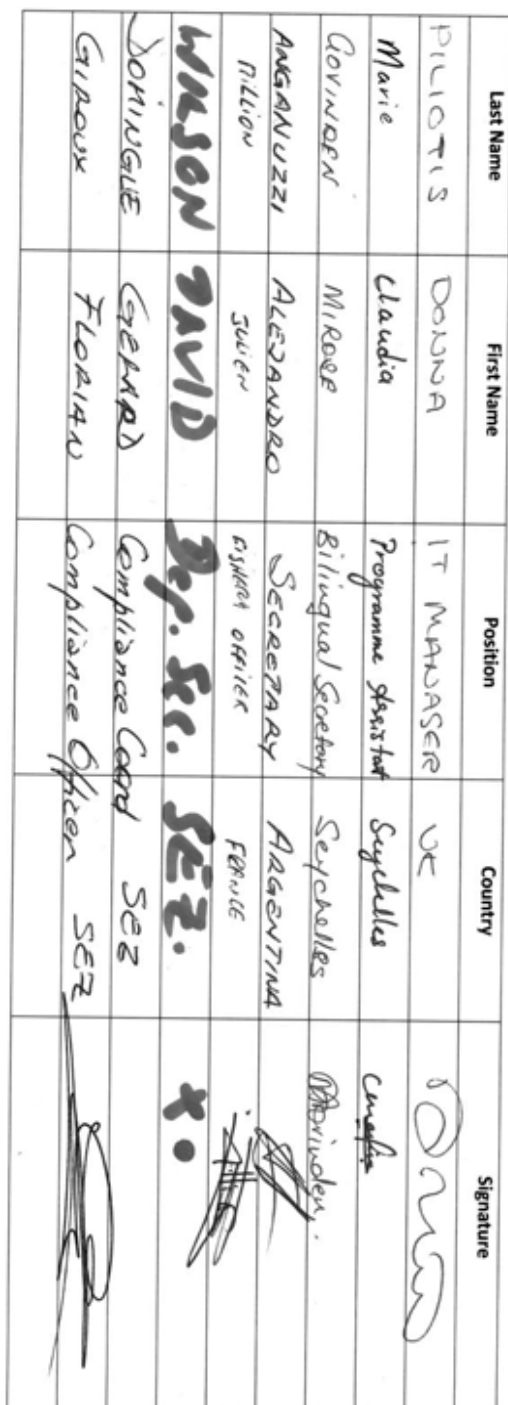 Last Name First Name Position Country Signature
PILIOTIS DONNA IT MANAGER UK
Marie Claudia Programme Assistant Seychelles
GOVINDEN MIROSE Bilingual Secretary Seychelles Mgovinden.
ANGANUZZI ALEJANDRO SECRETARY ARGENTINA
MILLION JULIEN FISHERY OFFICER FRANCE
WILSON DAVID Dep. Sec. SEZ. X.
DOMINGUE GERARD Compliance Coord SEZ
GIROUX FLORIAN Compliance Officer SEZ